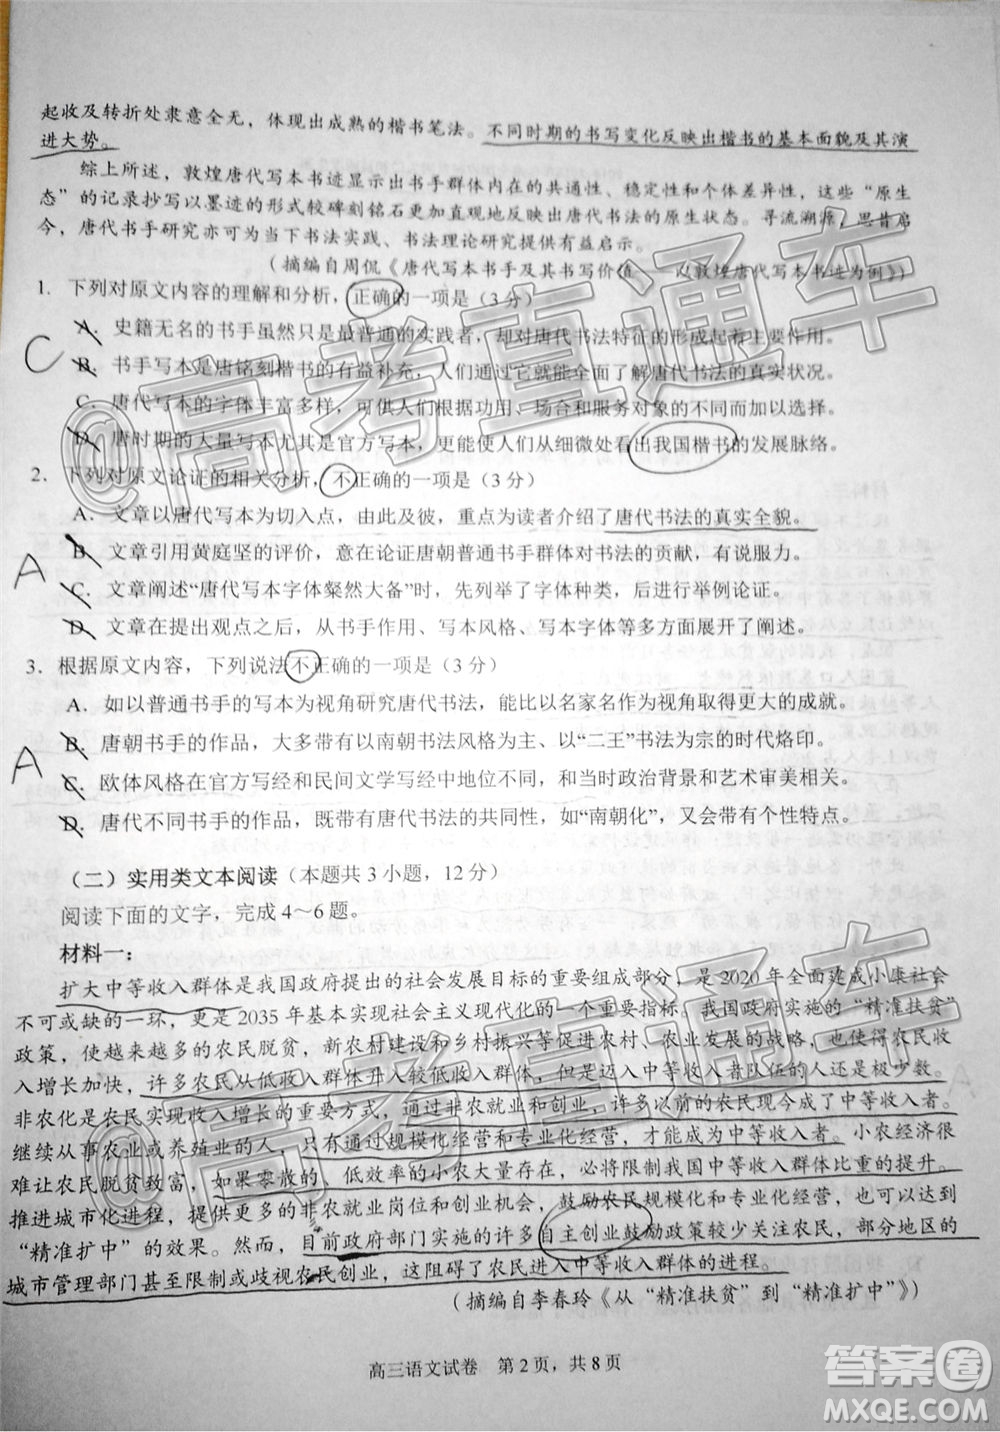 起收及转折处隶意全无，体现出成熟的楷书笔法。不同时期的书写变化反映出楷书的基本面貌及其演
进大势。
综上所述，敦煌唐代写本书迹显示出书手群体内在的共通性、稳定性和个体差异性，这些“原生
态”的记录抄写以墨迹的形式较碑刻铭石更加直观地反映出唐代书法的原生状态。寻流溯源，思昔启
今，唐代书手研究亦可为当下书法实践、书法理论研究提供有益启示。
（摘编自周侃《唐代写本书手及其书写价值——以敦煌唐代写本书迹为例》）
1. 下列对原文内容的理解和分析，正确的一项是（3分）
A. 史籍无名的书手虽然只是最普通的实践者，却对唐代书法特征的形成起了主要作用。
C
B. 书手写本是唐铭刻楷书的有益补充，人们通过它就能全面了解唐代书法的真实状况。
C. 唐代写本的字体丰富多样，可供人们根据功用、场合和服务对象的不同而加以选择。
D. 唐时期的大量写本尤其是官方写本，更能使人们从细微处看出我国楷书的发展脉络。
2. 下列对原文论证的相关分析，不正确的一项是（3分）
A. 文章以唐代写本为切入点，由此及彼，重点为读者介绍了唐代书法的真实全貌。
B. 文章引用黄庭坚的评价，意在论证唐朝普通书手群体对书法的贡献，有说服力。
A
C. 文章阐述“唐代写本字体粲然大备”时，先列举了字体种类，后进行举例论证。
D. 文章在提出观点之后，从书手作用、写本风格、写本字体等多方面展开了阐述。
3. 根据原文内容，下列说法不正确的一项是（3分）
A. 如以普通书手的写本为视角研究唐代书法，能比以名家名作为视角取得更大的成就。
B. 唐朝书手的作品，大多带有以南朝书法风格为主、以“二王”书法为宗的时代烙印。
A
C. 欧体风格在官方写经和民间文学写经中地位不同，和当时政治背景和艺术审美相关。
D. 唐代不同书手的作品，既带有唐代书法的共同性，如“南朝化”，又会带有个性特点。
（二）实用类文本阅读（本题共3小题，12分）
阅读下面的文字，完成4～6题。
材料一：
扩大中等收入群体是我国政府提出的社会发展目标的重要组成部分，是2020年全面建成小康社会
不可或缺的一环，更是2035年基本实现社会主义现代化的一个重要指标。我国政府实施的“精准扶贫”
政策，使越来越多的农民脱贫，新农村建设和乡村振兴等促进农村、农业发展的战略，使农民收
入增长加快，许多农民从低收入群体升入较低收入群体，但是迈入中等收入者队伍的人还是极少数。
非农化是农民实现收入增长的主要途径，通过非农就业和创业，许多以前的农民现今成了中等收入者。
继续从事农业或养殖业的人，只有通过规模化经营和专业化经营，才能成为中等收入者。小农经济很
难让农民脱贫致富，如果零散的、低效率的小农大量存在，必将限制我国中等收入群体比重的提升。
推进城市化进程，提供更多的非农就业岗位和创业机会，鼓励农民规模化和专业化经营，可以增强
“精准扩中”的效果。然而，目前政府部门实施的许多自主创业鼓励政策较少关注农民，部分地区的
城市管理部门甚至限制或歧视农民创业，这阻碍了农民进入中等收入群体的进程。
（摘编自李春玲《从“精准扶贫”到“精准扩中”》）
高三语文试卷 第2页，共8页
@高考直通车
@高考直通车
答案圈
MXQE.COM